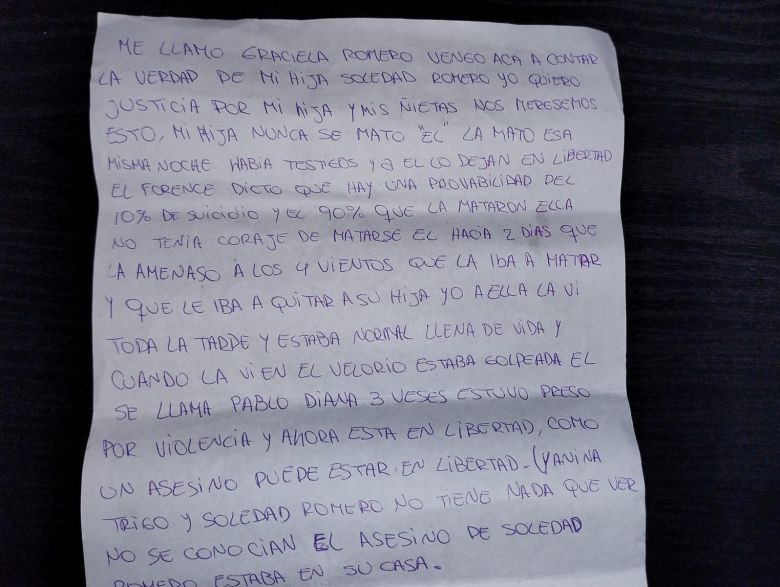 ME LLAMO GRACIELA ROMERO VENGO ACA A CONTAR
LA VERDAD DE MI HIJA SOLEDAD ROMERO YO QUIERO
JUSTICIA POR MI HIJA Y MIS NIETAS NOS MERESEMOS
ESTO, MI HIJA NUNCA SE MATO "EL" LA MATO ESA
MISMA NOCHE HABIA TESTIGOS Y a EL LO DEJAN EN LIBERTAD
EL FORENCE DICTO QUE HAY UNA PROVABILIDAD DEL
10% DE SUICIDIO Y EL 90% QUE LA MATARON ELLA
NO TENIA CORAJE DE MATARSE EL HACIA 2 DIAS QUE
LA AMENASO A LOS 4 VIENTOS QUE LA IBA A MATAR
Y QUE LE IBA A QUITAR A SU HIJA YO A ELLA LA VI
TODA LA TARDE Y ESTABA NORMAL LLENA DE VIDA Y
CUANDO LA VI EN EL VELORIO ESTABA GOLPEADA EL
SE LLAMA PABLO DIANA 3 VESES ESTUVO PRESO
POR VIOLENCIA Y AHORA ESTA EN LIBERTAD, COMO
UN ASESINO PUEDE ESTAR EN LIBERTAD. (YANINA
TRIGO Y SOLEDAD ROMERO NO TIENE NADA QUE VER
NO SE CONOCIAN EL ASESINO DE SOLEDAD
ROMERO ESTABA EN SU CASA.